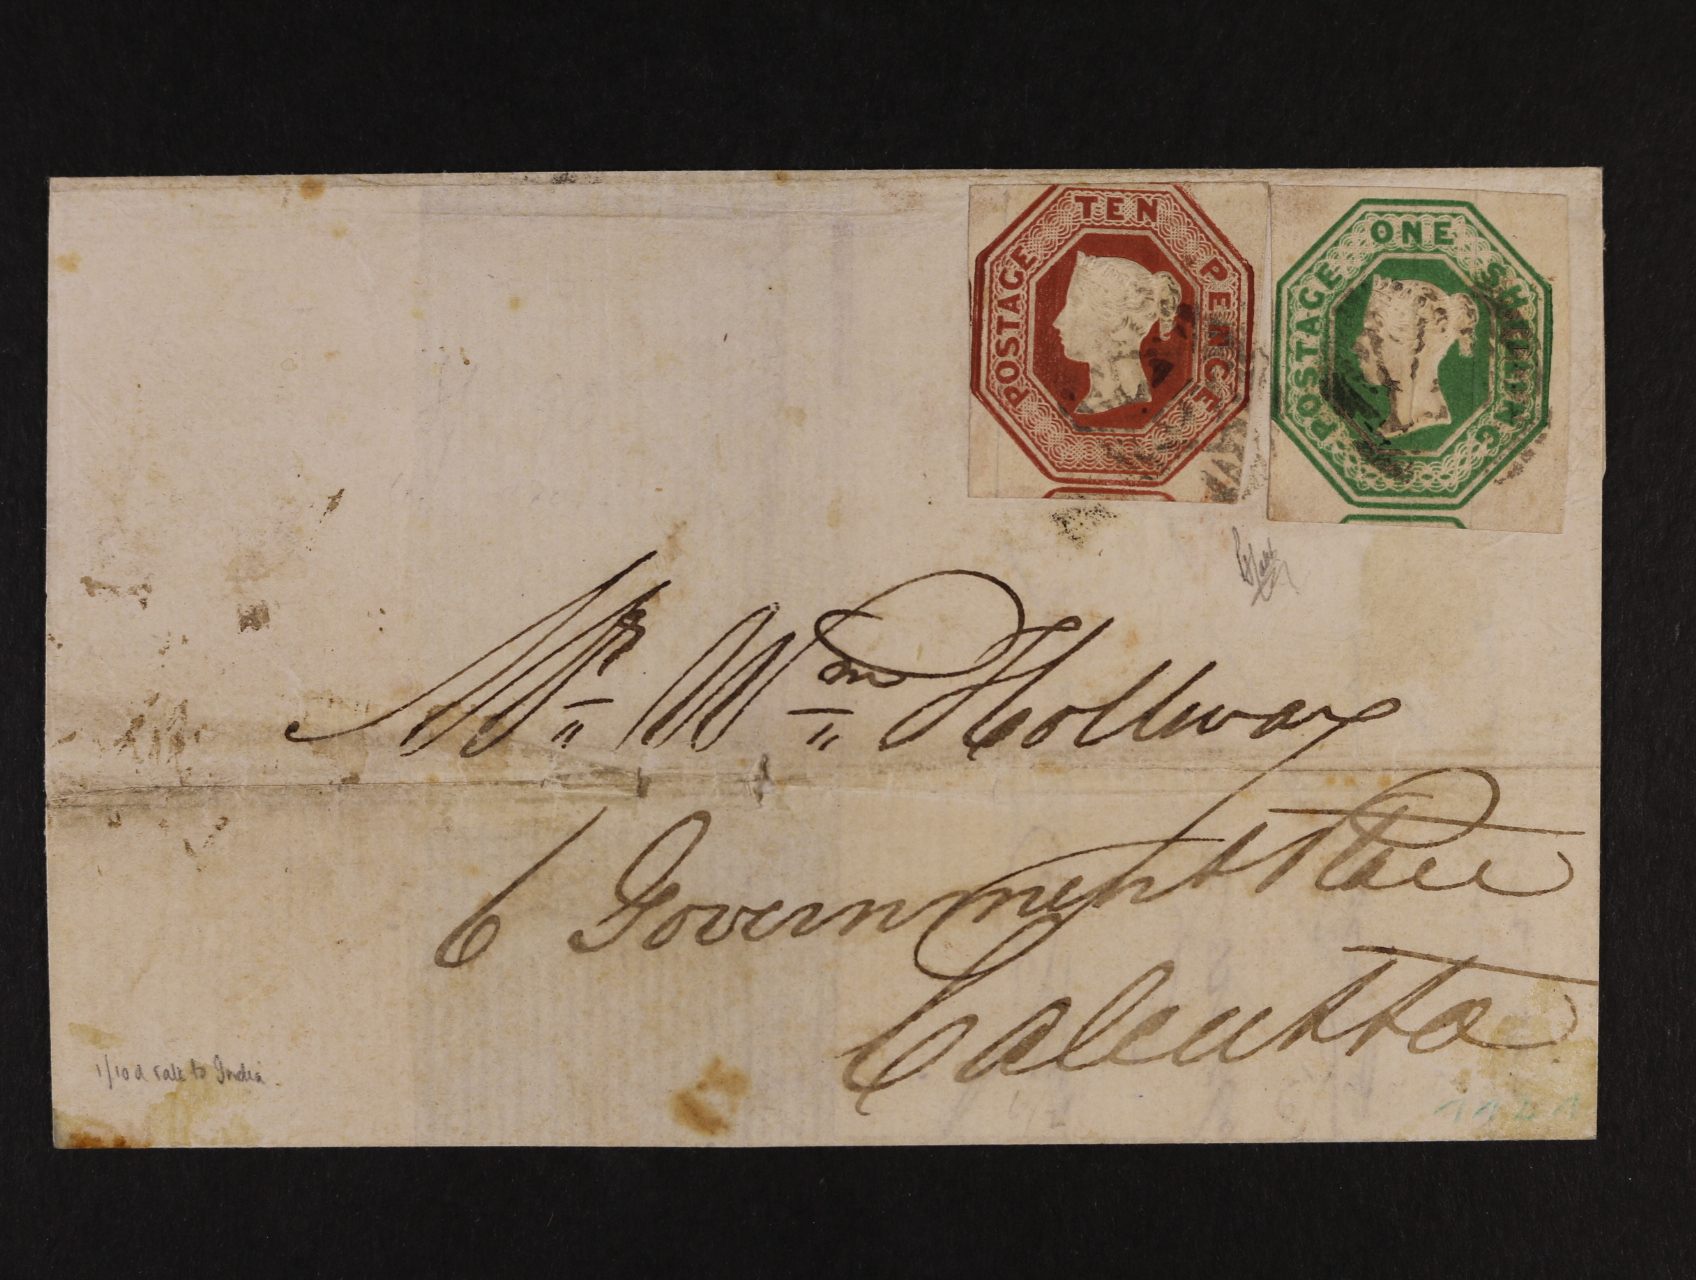 TEN PENCE
POSTAGE
ONE SHILLING
POSTAGE
Mr. Wm. Hollway
6 Government Place
Calcutta
1/10d rate to India